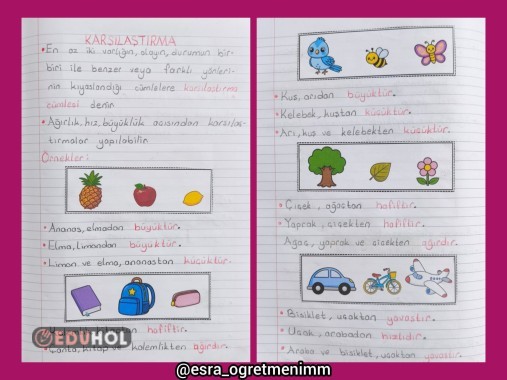 KARŞILAŞTIRMA
• En az iki varlığın, olayın, durumun bir-
biri ile benzer veya farklı yönleri-
nin kıyaslandığı cümlelere karşılaştırma
cümlesi denir.
• Ağırlık, hız, büyüklük açısından karşılaş-
tırmalar yapılabilir.
Örnekler:
• Ananas, elmadan büyüktür.
• Elma, limondan büyüktür.
• Limon ve elma, ananastan küçüktür.
hafiftir.
Çanta, kitap ve kalemlikten ağırdır.
EDUHOL
• Kuş, arıdan büyüktür.
• Kelebek, kuştan küçüktür.
• Arı, kuş ve kelebekten küçüktür.
• Çiçek, ağaçtan hafiftir.
• Yaprak, çiçekten hafiftir.
Ağaç, yaprak ve çiçekten ağırdır.
• Bisiklet, uçaktan yavaştır.
• Uçak, arabadan hızlıdır.
• Araba ve bisiklet, uçaktan yavaştır.
@esra_ogretmenimm